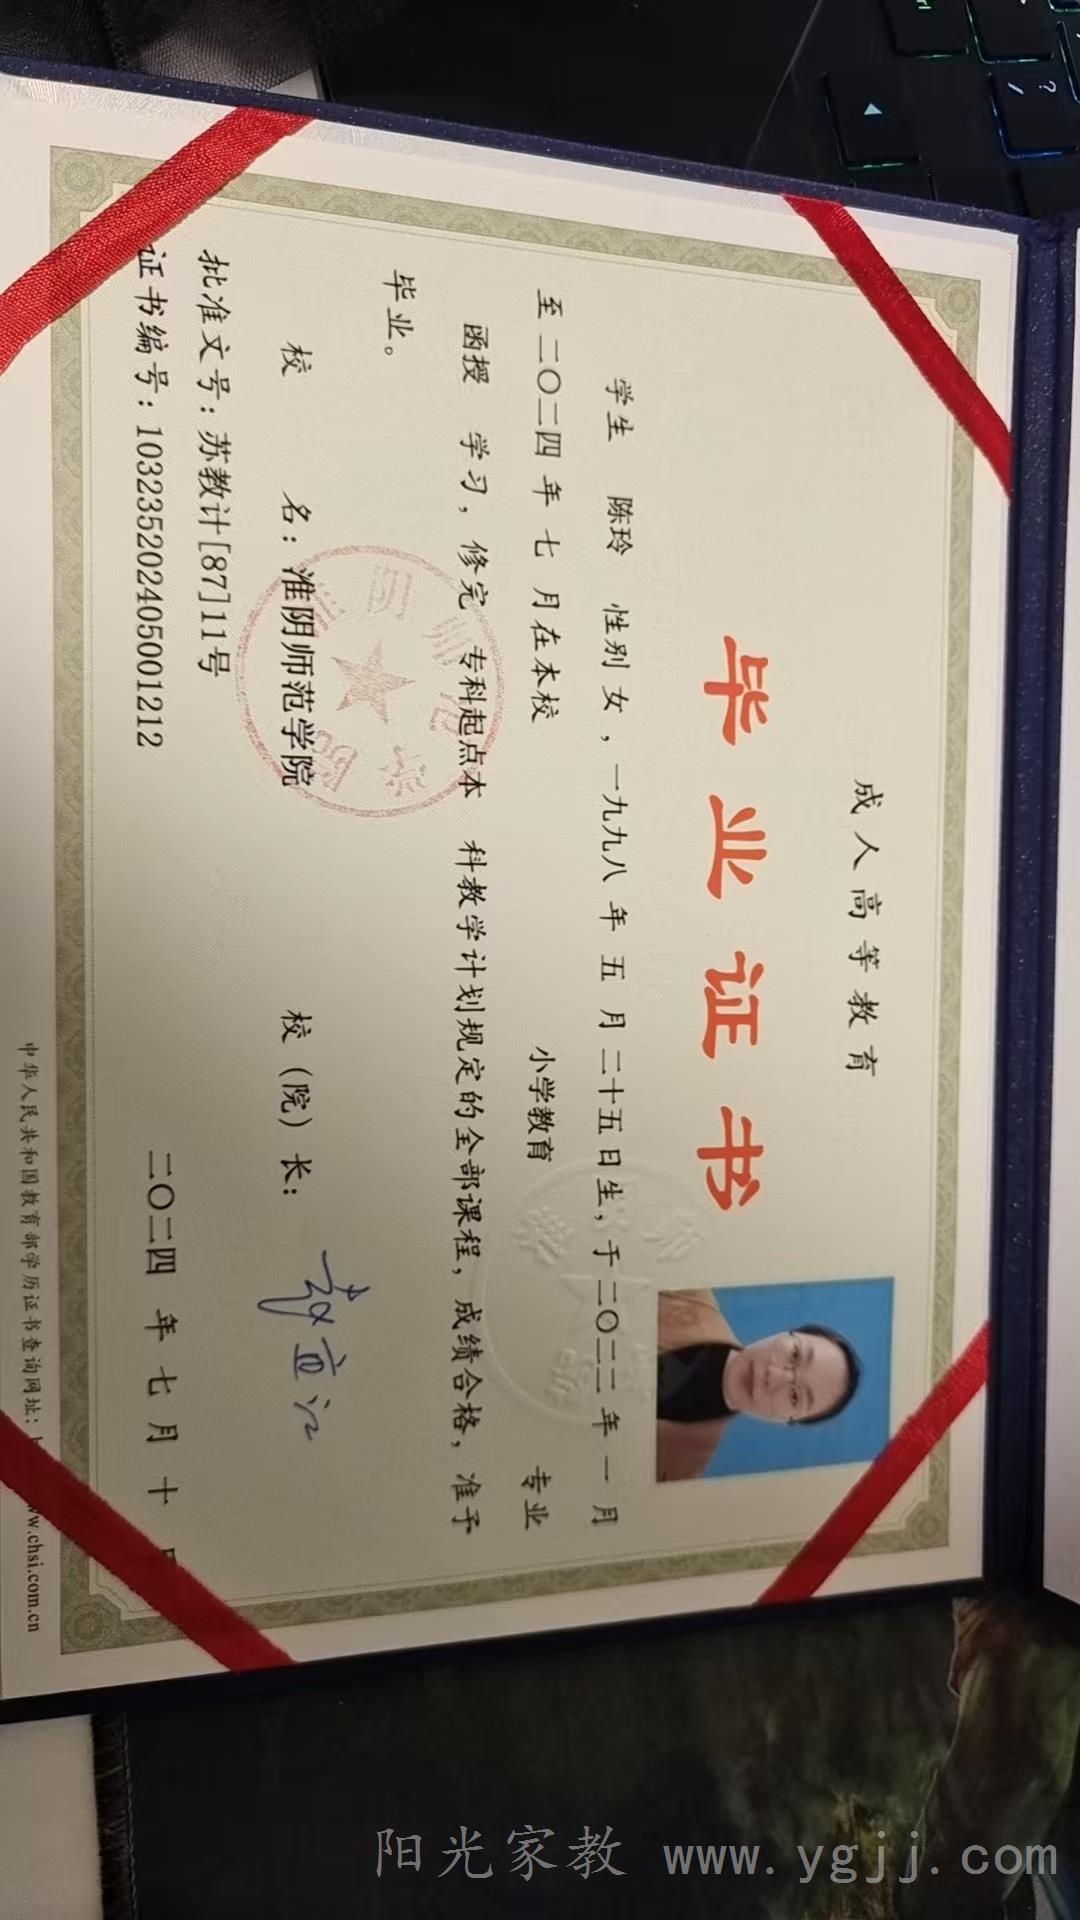 成人高等教育
毕业证书
学生 陈玲 性别女，一九九八年五月二十五日生，于二〇二二年一月
至二〇二四年七月在本校 小学教育 专业
函授 学习，修完 专科起点本 科教学计划规定的全部课程，成绩合格，准予
毕业。
校 名：淮阴师范学院 校（院）长：
批准文号：苏教计[87]11号
证书编号：103235202405001212 二〇二四年七月十
中华人民共和国教育部学历证书查询网址：
w.chsi.com.cn
阳光家教 www.ygjj.com